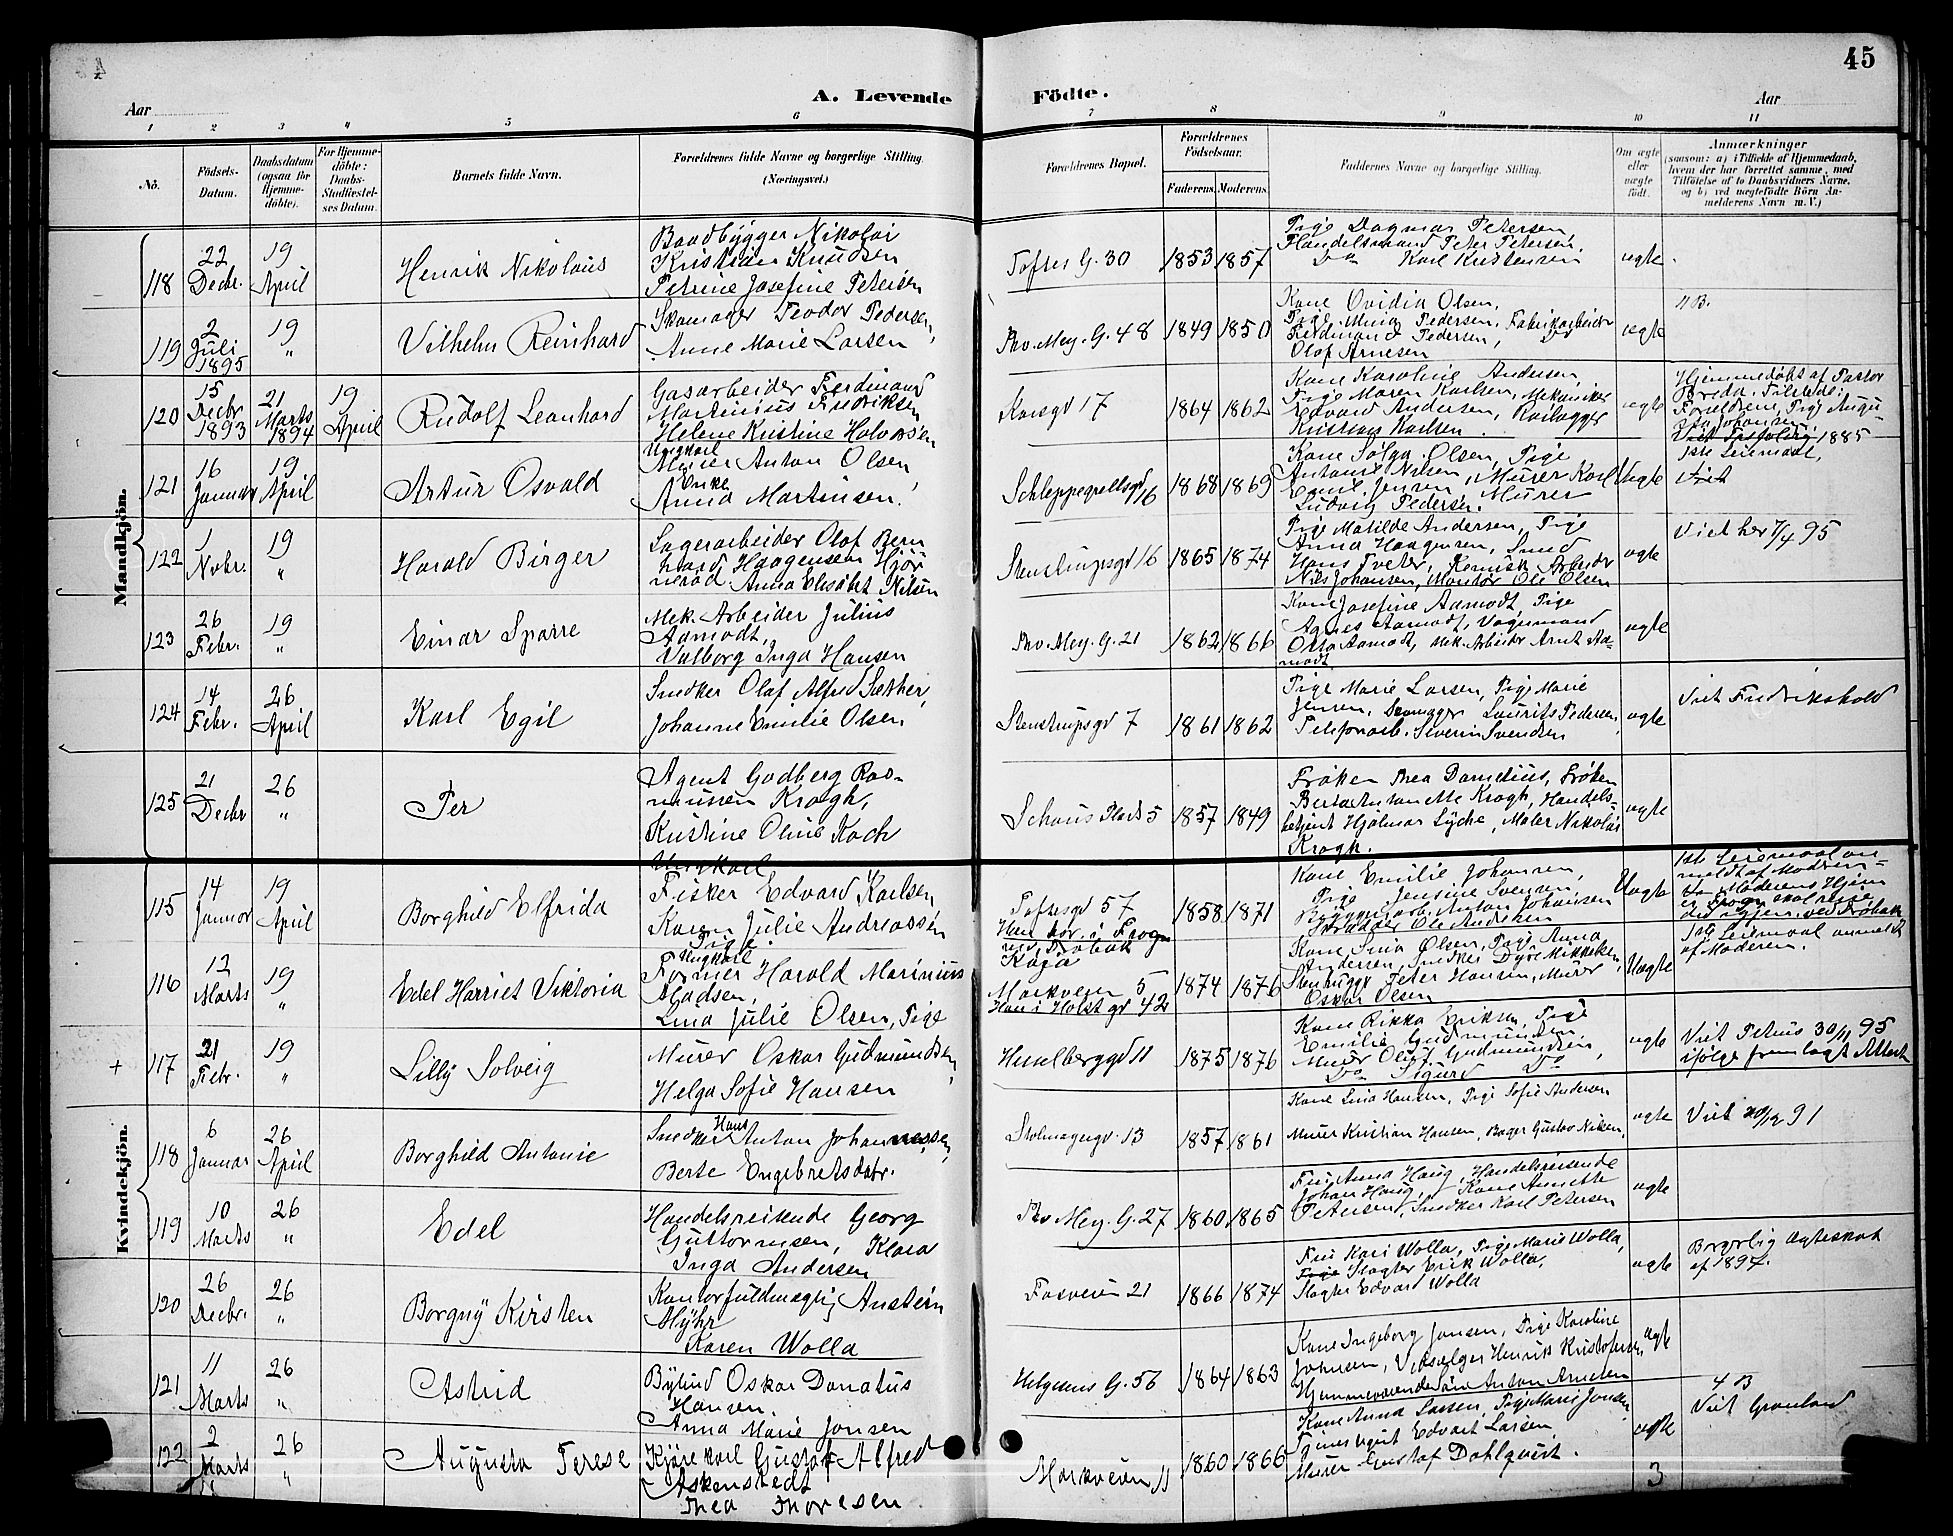 45
A. Levende Födte.
Aar
Aar
1 2 3 4 5 6 7 8 9 10 11
No.
Födsels-
Datum.
Daabsdatum
(ogsaa for
Hjemme-
döbte).
For Hjemme-
döbte:
Daabs-
Stadfæstel-
ses Datum.
Barnets fulde Navn.
Forældrenes fulde Navne og borgerlige Stilling.
(Næringsvei.)
Forældrenes Bopæl.
Forældrenes
Födselsaar.
Faderens. Moderens.
Faddernes Navne og borgerlige Stilling.
Om ægte
eller
uægte
födt.
Anmærkninger
(saasom: a) i Tilfælde af Hjemmedaab,
hvem der har forrettet samme, med
Tilföielse af to Daabsvidners Navne,
og b) ved uægtefödte Börn An-
melderens Navn m. V.)
Mandkjön.
118
22
Decbr.
19
April
Henrik Nikolaus
Baadbygger Nikolai
Kristian Knudsen
Petrine Josefine Petersen
Toftes G. 30
1853 1857
Pige Dagmar Petersen,
Handelsmand Peter Petersen,
Do Karl Kristensen
ægte.
119
2
Juli
1895
19
"
Vilhelm Reinhard
Skomager Teodor Pedersen,
Anne Marie Larsen
Thv. Mey. G. 48
1849 1850
Kone Ovidia Olsen,
Pige Maria Pedersen, Fabrikarbeider
Ferdinand Pedersen, Do
Olaf Arnesen
ægte
4 B.
120
15
Decbr
1893
21
Marts
1894
19
April
Rudolf Leonhard
Gasarbeider Ferdinand
Martinius Fredriksen
Helene Kristine Halvorsen
Korsgd 17
1864 1862
Kone Karoline Andersen,
Pige Maren Karlsen, Mekaniker
Edvard Andersen,
Kristian Karlsen.
ægte
Hjemmedöbt af Pastor
Breda, Tilstede:
Forældrene, Pige Augu
sta Johansen.
1885
121
16
Januar
19
April
Artur Osvald
Ungkarl
Murer Anton Olsen
Enke
Anna Martinsen.
Schleppegrellsgd 16
1868 1869
Kone Solga Olsen, Pige
Antonie Nilsen, Murer Karl
Emil Jensen, Murer
Ludvig Pedersen.
Uægte
1ste Leiermaal,
Viet
122
1
Novbr.
19
"
Harald Birger
Lagerarbeider Olaf Bern
hard Haagensen Hjör
neröd. Anna Elisabet Nilsen
Stenstrupsgd 16
1865 1874
Pige Matilde Andersen, Pige
Anna Haagensen, Smed
Hans Tveter, Kemisk Arbeider
Nils Johansen, Montör Ole Olsen
ægte
Viet her 7/4 95
123
26
Febr.
19
"
Einar Sparre
Mek. Arbeider Julius
Aamodt,
Valborg Inga Hansen
Thv. Mey. G. 21
1862 1866
Kone Josefine Aamodt, Pige
Agnes Aamodt, Vognmand
Otto Aamodt, Mek. Arbeider Arnt Aa-
modt.
ægte
124
14
Febr.
26
April
Karl Egil
Snedker Olaf Alfred Sæther,
Johanne Emilie Olsen
Stenstrupsgd 7
1861 1862
Pige Marie Larsen, Pige Marie
Jensen, Skomager Laurits Pedersen,
Telefonarb. Severin Svendsen
ægte
Viet Fredrikshald
125
21
Decbr
26
"
Per
Agent Godberg Ras-
mussen Krogh,
Kristine Oline Koch
Schous Plads 5
1857 1849
Fröken Thea Danielius, Fröken
Berta Antonette Krogh, Handels-
betjent Hjalmar Lyche, Maler Nikolai
Krogh.
ægte
Kvindekjön.
115
14
Januar
19
April
Borghild Elfrida
Ungkarl
Fisker Edvard Karlsen
Karen Julie Andreassen
Pige
Toftesgd 57
Han bor i Frogn
ved Dröbak
1858 1871
Kone Emilie Johansen,
Pige Jensine Svensen,
Bryggeriarb. Anton Johansen
Skrædder Ole Andersen
Uægte
1ste Leiermaal an-
meldt af Moderen
Moderens Hjem
er Frogn skal reise
did igjen, ved Dröbak
116
12
Marts
19
"
Edel Harriet Viktoria
Ungkarl
Former Harald Marinius
Madsen,
Lina Julie Olsen, Pige
Kaja
Markveien 5
Han i Holst gd 42
1874 1876
Kone Lina Olsen, Pige Anna
Andersen, Snedker Dyre Mikkelsen,
Stenhugger Peter Hansen, Murer
Oskar Olsen
Uægte
1ste Leiermaal anmeldt
af Moderen.
117
21
Febr.
19
"
Lilly Solveig
Murer Oskar Gudmundsen,
Helga Sofie Hansen
Hesselberggd 11
1875 1876
Kone Rikka Eriksen, Pige
Emilie Gudmundsen
Murer Oluf Gudmundsen,
Do Sigurd Do
ægte
Viet Petrus 30/11 95
ifölge fremlagt Attest
118
6
Januar
26
April
Borghild Antonie
Hans
Snedker Anton Johannessen,
Berte Engebretsdatr.
Stolmagergd. 13
1857 1861
Kone Lina Hansen, Pige Sofie Andersen
Murer Kristian Hansen, Bager Gustav Nilsen,
ægte
Viet 20/12 91
119
10
Marts
26
"
Edel
Handelsreisende Georg
Guttormsen, Klara
Inga Andersen
Thv Mey. G. 27
1860 1865
Fru Anna Haug, Handelsreisende
Johan Haug, Kone Annette
Petersen, Snedker Karl Petersen
ægte
120
26
Decbr.
26
"
Borgny Kirsten
Kontorfuldmægtig Anstein
Myhr
Karen Wolla
Fosveien 21
1866 1874
Fru Kari Wolla, Pige Marie Wolla,
Slagter Erik Wolla,
Slagter Edvard Wolla
ægte
Borgerlig Ægteskab
af 1894.
121
11
Marts
26
"
Astrid
Bybud Oskar Donatus
Hansen,
Anna Marie Jonsen
Helgesens G. 56
1864 1863
Kone Ingeborg Jansen, Pige Karoline
Johnsen, Vedsælger Henrik Kristofersen,
Hjemmeværende Sön Anton Arnesen
ægt
4 B
122
2
Marts
26
"
Augusta Terese
Kjörekarl Gustaf Alfred
Askenstedt
Thea Thoresen
Markveien 11
1860 1866
Kone Anna Larsen, Pige Marie Jonsen
Edvart Larsen
Murer Gustaf Dahlqvist.
ægte
Viet Grønland
3